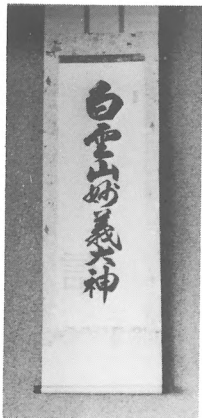 白雲山妙義大神